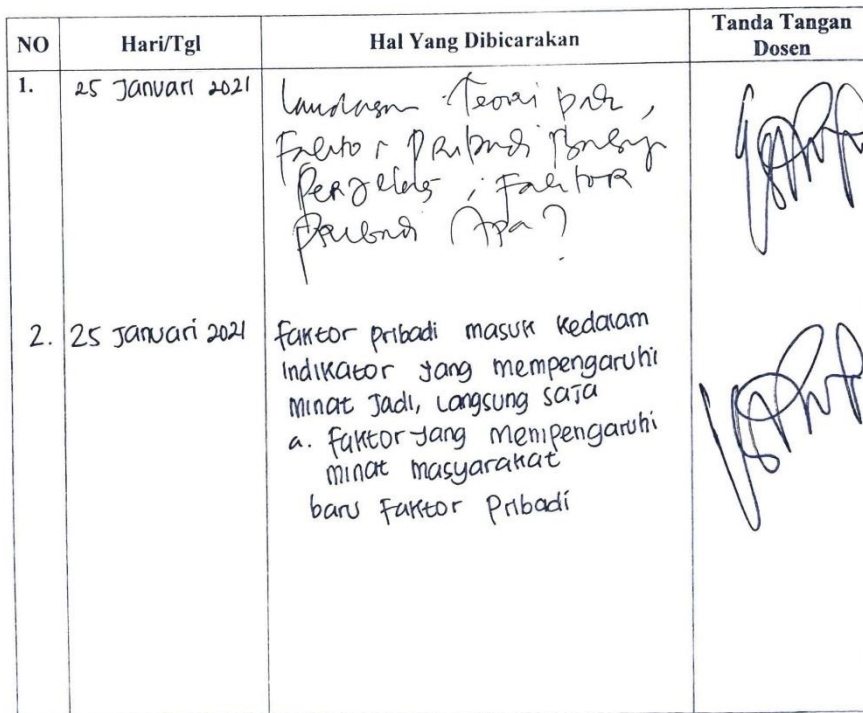 NO Hari/Tgl Hal Yang Dibicarakan Tanda Tangan
Dosen
1. 25 Januari 2021 Landasan Teori
Faktor Pribadi
Perjelas, Faktor
Pribadi Apa?
2. 25 Januari 2021 faktor pribadi masuk kedalam
indikator yang mempengaruhi
minat Jadi, Langsung saja
a. faktor yang mempengaruhi
minat masyarakat
baru Faktor Pribadi